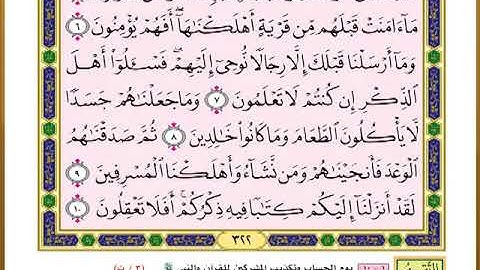 مَآ ءَامَنَتْ قَبْلَهُم مِّن قَرْيَةٍ أَهْلَكْنَٰهَآ ۖ أَفَهُمْ يُؤْمِنُونَ ٦
وَمَآ أَرْسَلْنَا قَبْلَكَ إِلَّا رِجَالًا نُّوحِىٓ إِلَيْهِمْ ۖ فَسْـَٔلُوٓا۟ أَهْلَ
ٱلذِّكْرِ إِن كُنتُمْ لَا تَعْلَمُونَ ٧ وَمَا جَعَلْنَٰهُمْ جَسَدًا
لَّا يَأْكُلُونَ ٱلطَّعَامَ وَمَا كَانُوا۟ خَٰلِدِينَ ٨ ثُمَّ صَدَقْنَٰهُمُ
ٱلْوَعْدَ فَأَنجَيْنَٰهُمْ وَمَن نَّشَآءُ وَأَهْلَكْنَا ٱلْمُسْرِفِينَ ٩
لَقَدْ أَنزَلْنَآ إِلَيْكُمْ كِتَٰبًا فِيهِ ذِكْرُكُمْ ۖ أَفَلَا تَعْقِلُونَ ١٠
٣٢٢
يوم الحساب وتكذيب المشركين للقرآن والنبي ﷺ